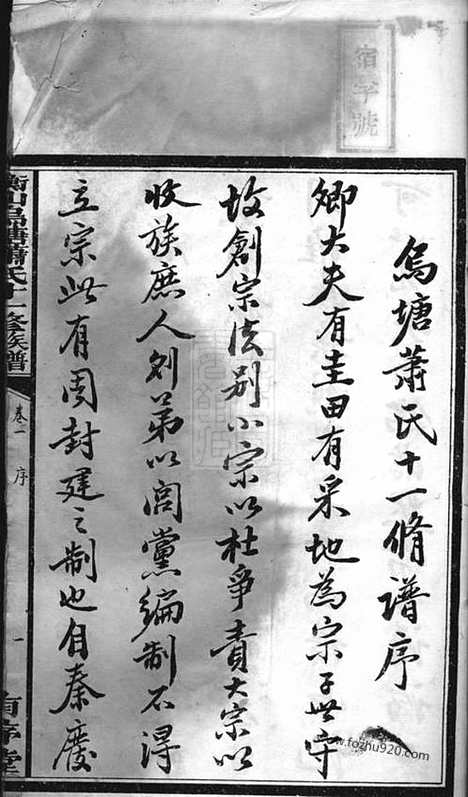 宿字號
烏塘蕭氏十一脩譜序
卿大夫有圭田有采地為宗子世守
故創宗法別小宗以杜爭責大宗以
收族庶人則第以閭黨編制不得
立宗此有周封建之制也自秦廢
衡山烏塘蕭氏十一修族譜
卷一 序
一
www.fozhu920.com